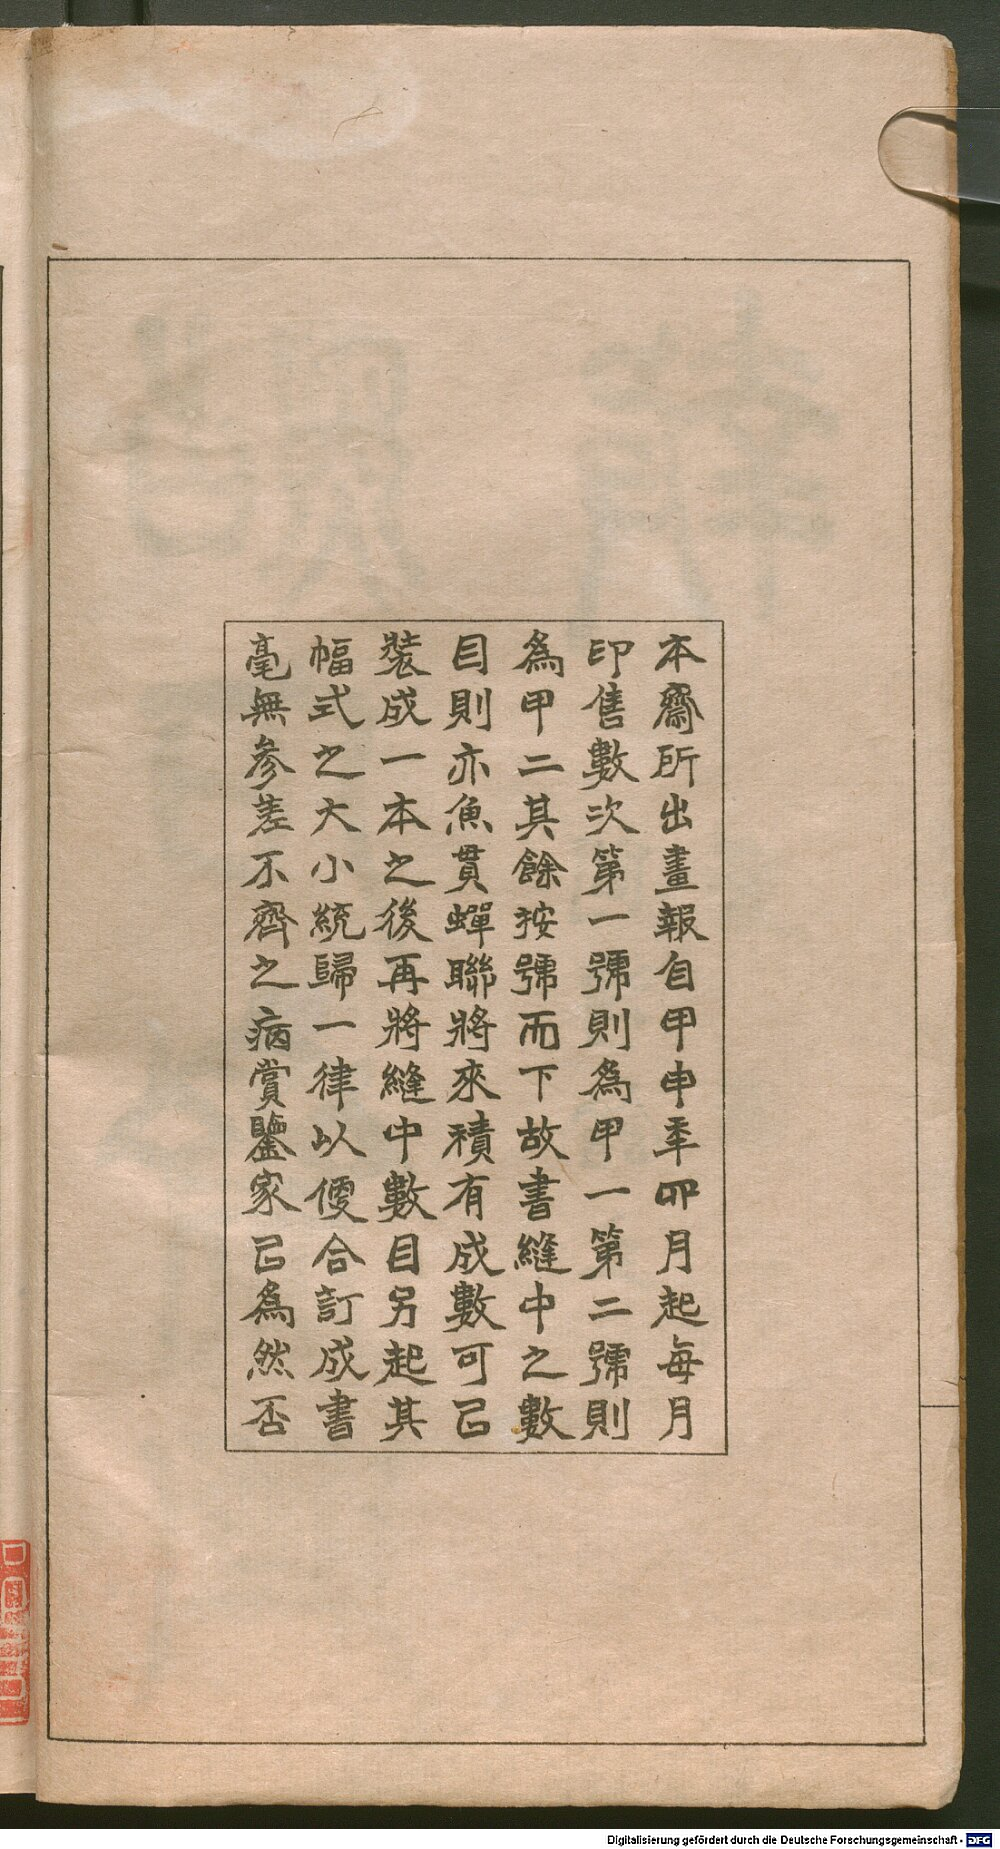 本齋所出畫報自甲申年四月起每月
印售數次第一號則為甲一第二號則
為甲二其餘按號而下故書縫中之數
目則亦魚貫蟬聯將來積有成數可已
裝成一本之後再將縫中數目另起其
幅式之大小統歸一律以便合訂成書
毫無參差不齊之病賞鑒家已為然否
Digitalisierung gefördert durch die Deutsche Forschungsgemeinschaft - DFG